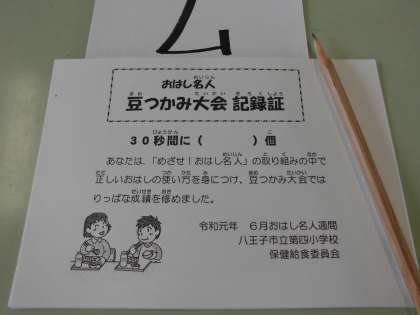 ム
おはし名人
豆つかみ大会 記録証
30秒間に（　　　）個
あなたは、「めざせ！おはし名人」の取り組みの中で
正しいおはしの使い方を身につけ、豆つかみ大会では
りっぱな成績を修めました。
令和元年　6月おはし名人週間
八王子市立第四小学校
保健給食委員会